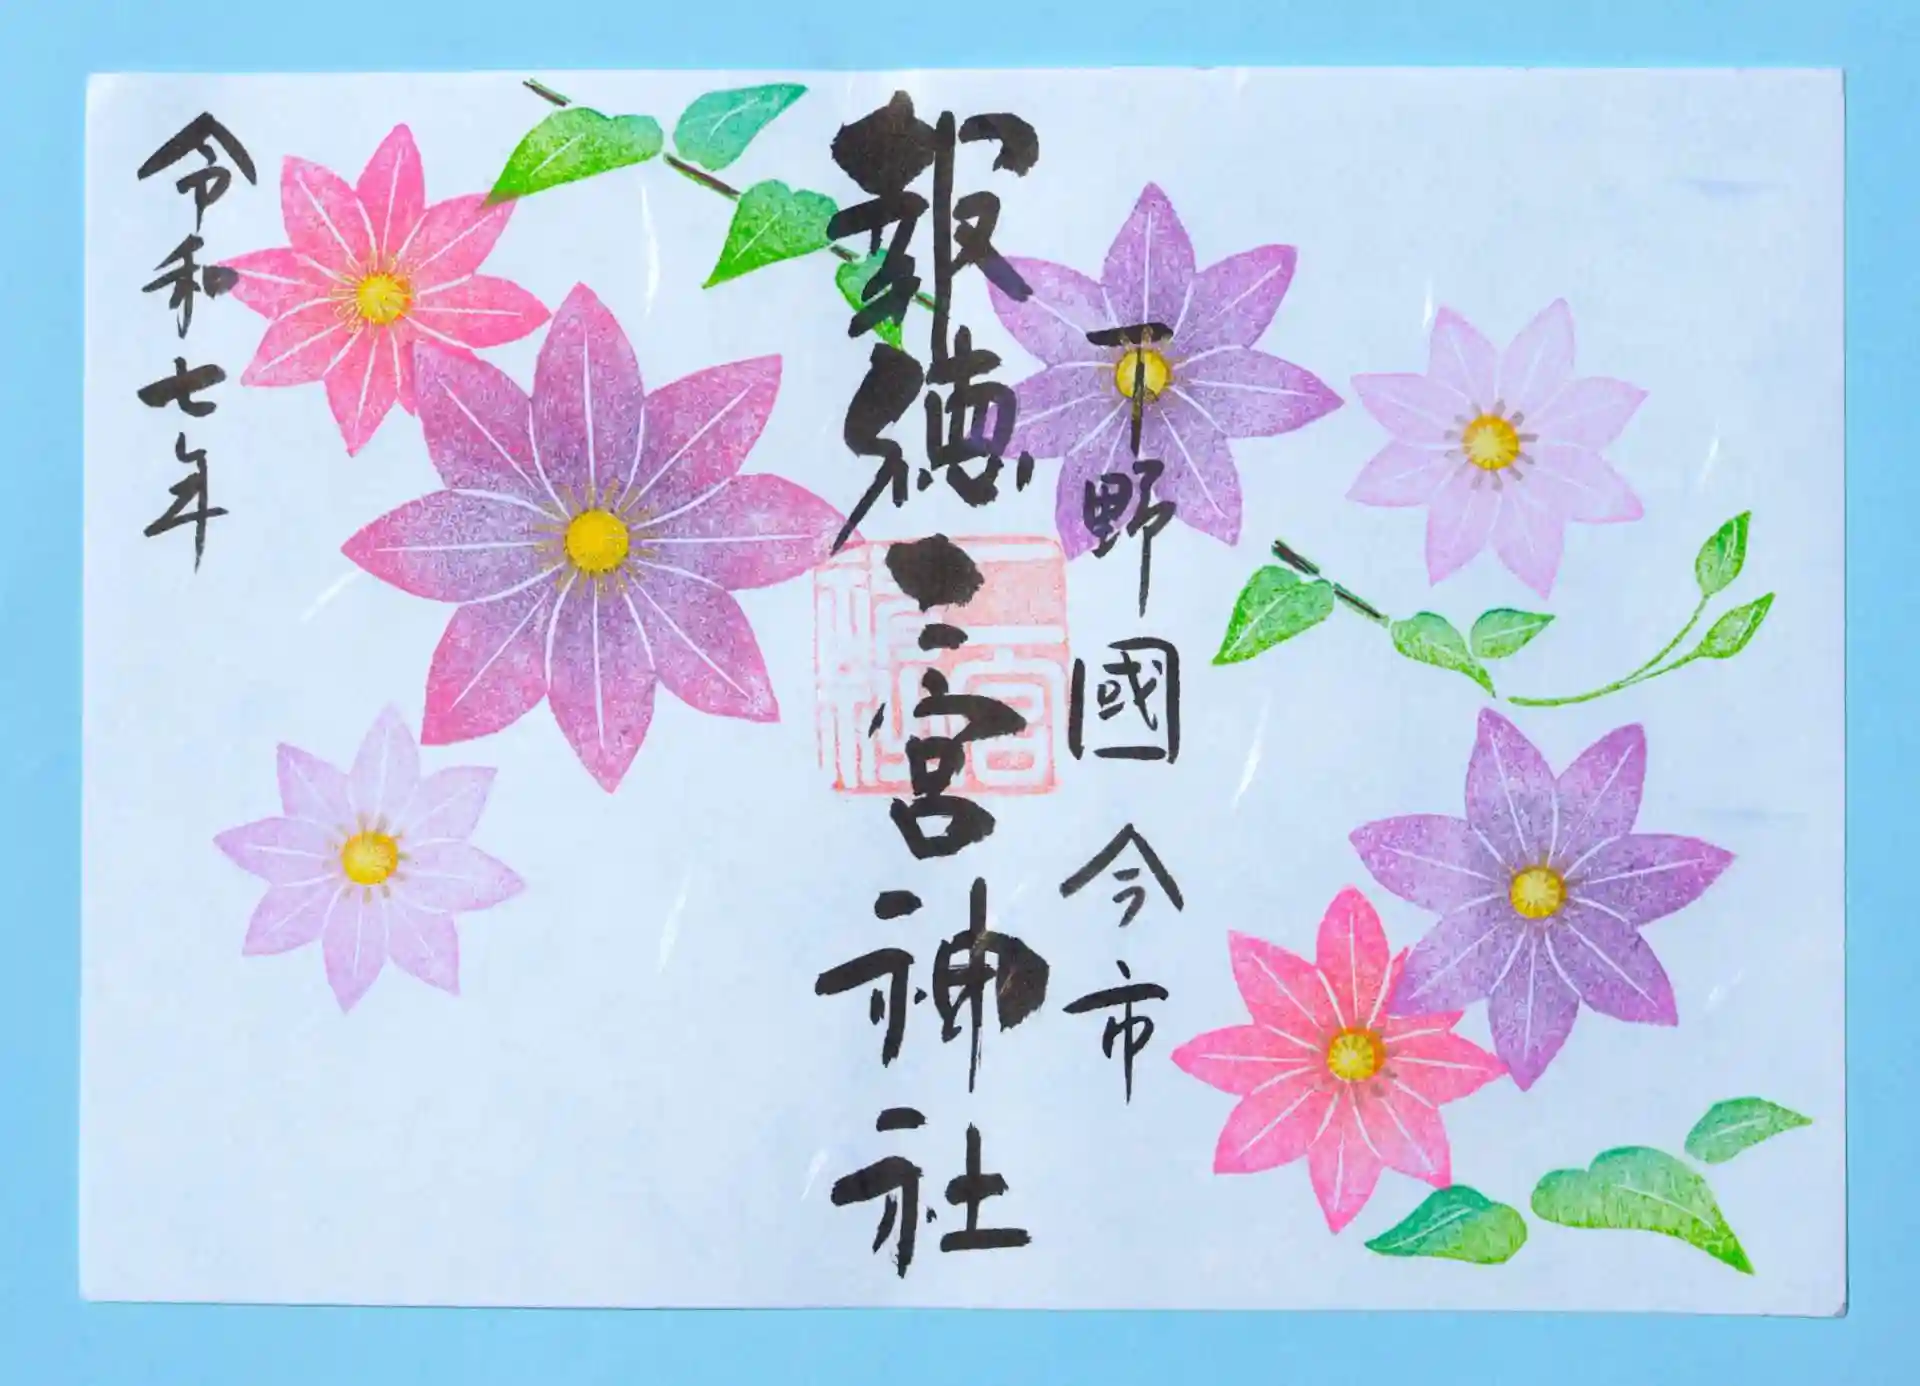 下野國 今市
報徳二宮神社
令和七年